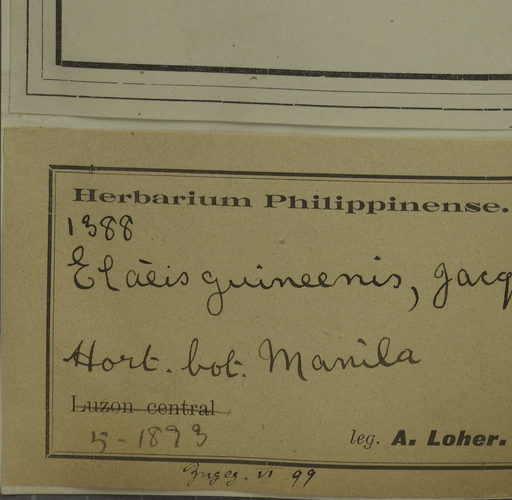 Herbarium Philippinense.
1388
Elaeis guineenis, Jacq
Hort. bot. Manila
Luzon central
5-1893
leg. A. Loher.
VI 99